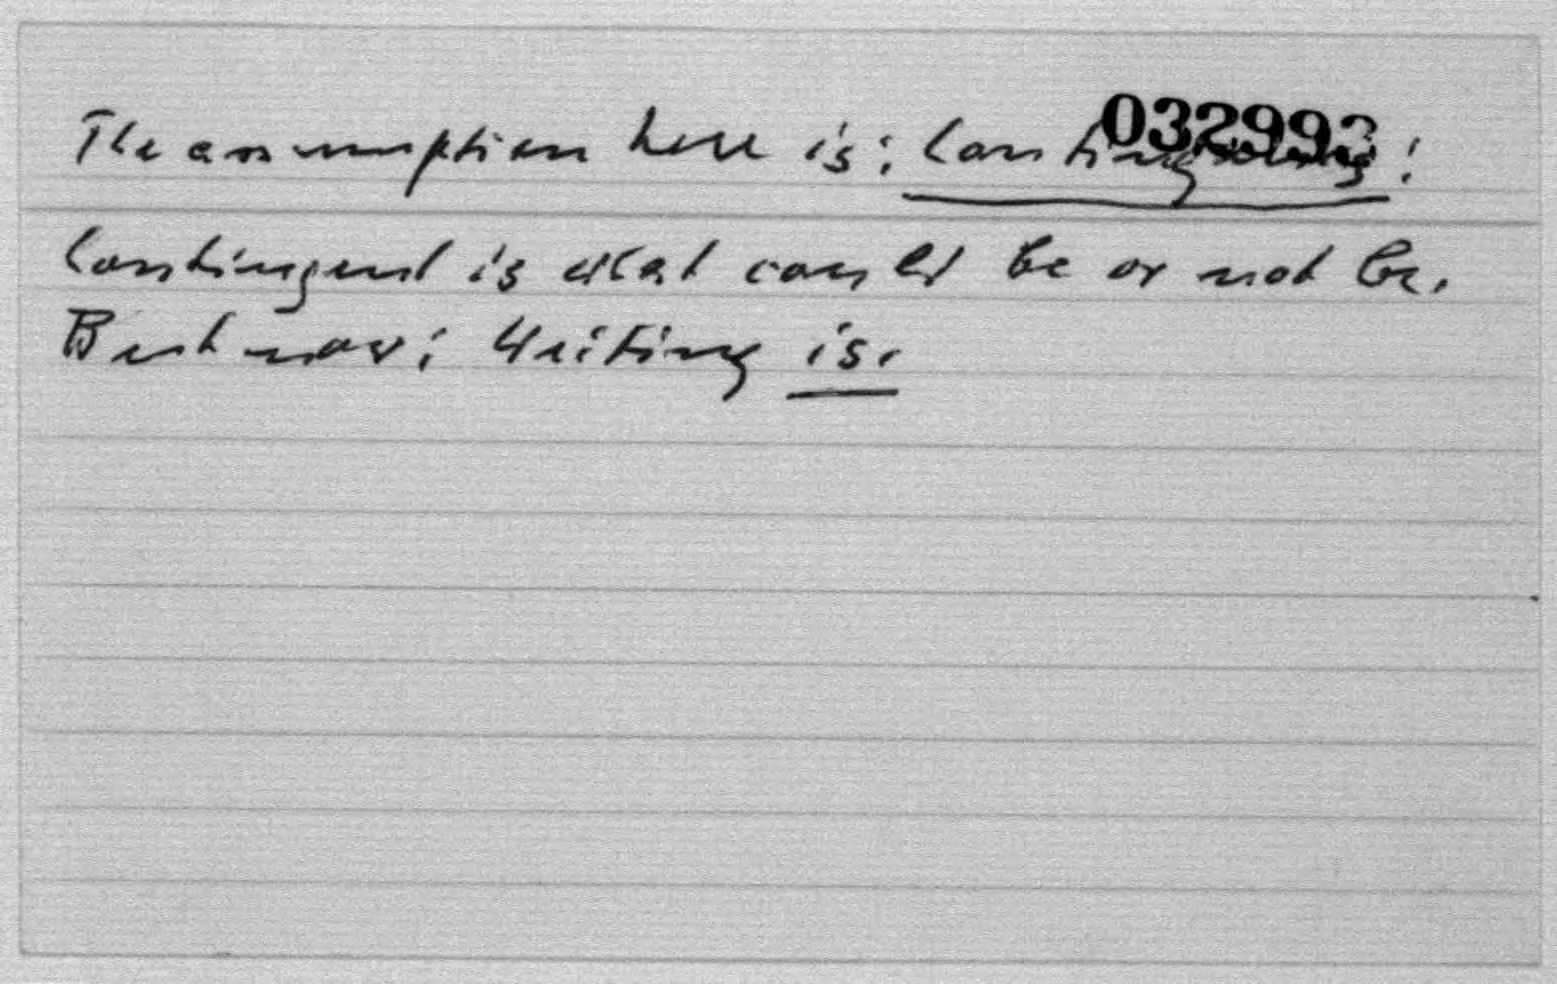 032993
The assumption here is: Contingency:
Contingent is what could be or not be.
But now: Writing is.